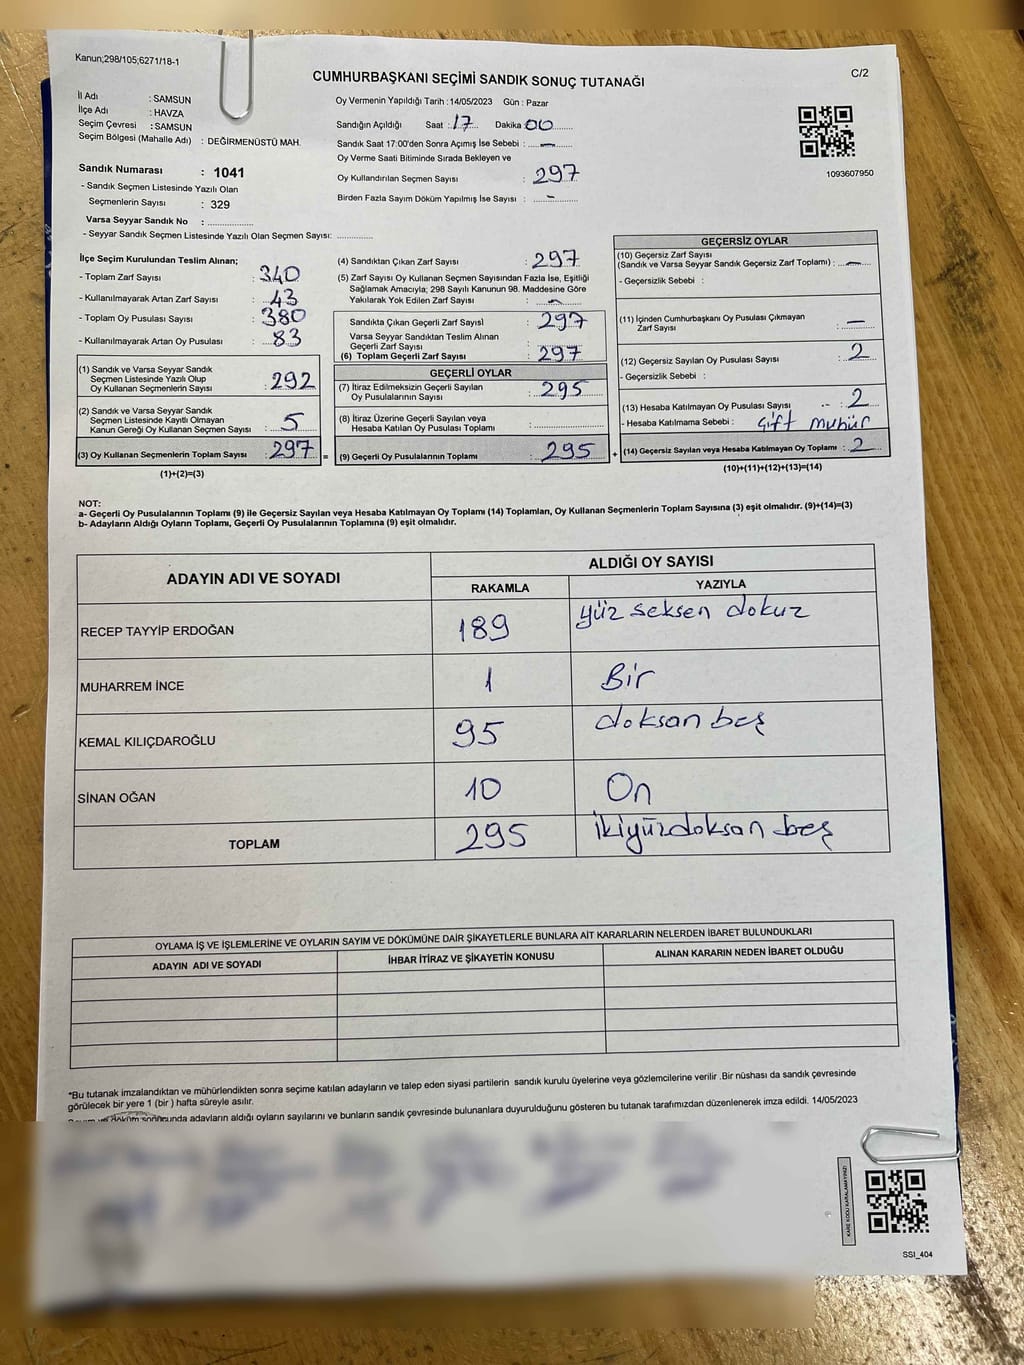 Kanun;298/105;6271/18-1
CUMHURBAŞKANI SEÇİMİ SANDIK SONUÇ TUTANAĞI
C/2
İl Adı : SAMSUN
İlçe Adı : HAVZA
Seçim Çevresi : SAMSUN
Seçim Bölgesi (Mahalle Adı) : DEĞİRMENÜSTÜ MAH.
Sandık Numarası : 1041
- Sandık Seçmen Listesinde Yazılı Olan
Seçmenlerin Sayısı : 329
Varsa Seyyar Sandık No : ................
- Seyyar Sandık Seçmen Listesinde Yazılı Olan Seçmen Sayısı: .............
Oy Vermenin Yapıldığı Tarih : 14/05/2023 Gün : Pazar
Sandığın Açıldığı Saat : 17 Dakika 00
Sandık Saat 17:00'den Sonra Açımış İse Sebebi : —
Oy Verme Saati Bitiminde Sırada Bekleyen ve
Oy Kullandırılan Seçmen Sayısı : 297
Birden Fazla Sayım Döküm Yapılmış İse Sayısı : -
1093607950
İlçe Seçim Kurulundan Teslim Alınan;
- Toplam Zarf Sayısı : 340
- Kullanılmayarak Artan Zarf Sayısı : 43
- Toplam Oy Pusulası Sayısı : 380
- Kullanılmayarak Artan Oy Pusulası : 83
(1) Sandık ve Varsa Seyyar Sandık
Seçmen Listesinde Yazılı Olup
Oy Kullanan Seçmenlerin Sayısı : 292
(2) Sandık ve Varsa Seyyar Sandık
Seçmen Listesinde Kayıtlı Olmayan
Kanun Gereği Oy Kullanan Seçmen Sayısı : 5
(3) Oy Kullanan Seçmenlerin Toplam Sayısı : 297
(1)+(2)=(3)
(4) Sandıktan Çıkan Zarf Sayısı : 297
(5) Zarf Sayısı Oy Kullanan Seçmen Sayısından Fazla İse, Eşitliği
Sağlamak Amacıyla; 298 Sayılı Kanunun 98. Maddesine Göre
Yakılarak Yok Edilen Zarf Sayısı : —
Sandıkta Çıkan Geçerli Zarf Sayısı : 297
Varsa Seyyar Sandıktan Teslim Alınan
Geçerli Zarf Sayısı
(6) Toplam Geçerli Zarf Sayısı : 297
GEÇERLİ OYLAR
(7) İtiraz Edilmeksizin Geçerli Sayılan
Oy Pusulasının Sayısı : 295
(8) İtiraz Üzerine Geçerli Sayılan veya
Hesaba Katılan Oy Pusulası Toplamı : ................
=
(9) Geçerli Oy Pusulalarının Toplamı : 295
+
GEÇERSİZ OYLAR
(10) Geçersiz Zarf Sayısı
(Sandık ve Varsa Seyyar Sandık Geçersiz Zarf Toplamı) : —
- Geçersizlik Sebebi :
(11) İçinden Cumhurbaşkanı Oy Pusulası Çıkmayan
Zarf Sayısı : —
(12) Geçersiz Sayılan Oy Pusulası Sayısı : 2
- Geçersizlik Sebebi :
(13) Hesaba Katılmayan Oy Pusulası Sayısı : 2
- Hesaba Katılmama Sebebi : çift mühür
(14) Geçersiz Sayılan veya Hesaba Katılmayan Oy Toplamı : 2
(10)+(11)+(12)+(13)=(14)
NOT:
a- Geçerli Oy Pusulalarının Toplamı (9) ile Geçersiz Sayılan veya Hesaba Katılmayan Oy Toplamı (14) Toplamları, Oy Kullanan Seçmenlerin Toplam Sayısına (3) eşit olmalıdır. (9)+(14)=(3)
b- Adayların Aldığı Oyların Toplamı, Geçerli Oy Pusulalarının Toplamına (9) eşit olmalıdır.
ADAYIN ADI VE SOYADI
ALDIĞI OY SAYISI
RAKAMLA YAZIYLA
RECEP TAYYİP ERDOĞAN 189 yüz seksen dokuz
MUHARREM İNCE 1 Bir
KEMAL KILIÇDAROĞLU 95 doksan beş
SİNAN OĞAN 10 On
TOPLAM 295 ikiyüzdoksan beş
OYLAMA İŞ VE İŞLEMLERİNE VE OYLARIN SAYIM VE DÖKÜMÜNE DAİR ŞİKAYETLERLE BUNLARA AİT KARARLARIN NELERDEN İBARET BULUNDUKLARI
ADAYIN ADI VE SOYADI İHBAR İTİRAZ VE ŞİKAYETİN KONUSU ALINAN KARARIN NEDEN İBARET OLDUĞU
*Bu tutanak imzalandıktan ve mühürlendikten sonra seçime katılan adayların ve talep eden siyasi partilerin sandık kurulu üyelerine veya gözlemcilerine verilir .Bir nüshası da sandık çevresinde
görülecek bir yere 1 (bir ) hafta süreyle asılır.
Sayım ve döküm sonucunda adayların aldığı oyların sayılarını ve bunların sandık çevresinde bulunanlara duyurulduğunu gösteren bu tutanak tarafımızdan düzenlenerek imza edildi. 14/05/2023
KARE KODU KARALAMAYINIZ!
SSI_404